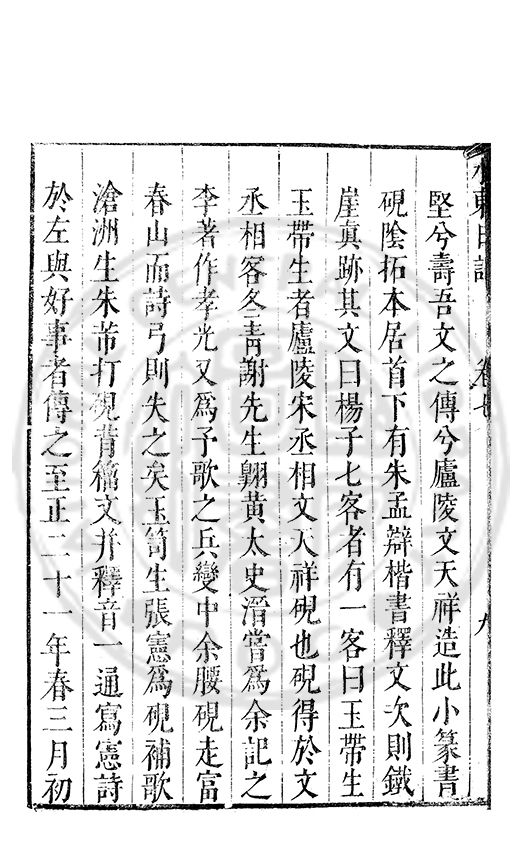 水東日記 卷七 九
堅兮壽吾文之傳兮廬陵文天祥造此小篆書
硯陰拓本居首下有朱孟辯楷書釋文次則鐵
崖真跡其文曰楊子七客者有一客曰玉帶生
玉帶生者廬陵宋丞相文天祥硯也硯得於文
丞相客冬青謝先生翺黃太史溍嘗為余記之
李著作孝光又為予歌之兵變中余腰硯走富
春山而詩弓則失之矣玉笥生張憲為硯補歌
滄洲生朱芾打硯背籀文并釋音一通寫憲詩
於左與好事者傳之至正二十一年春三月初